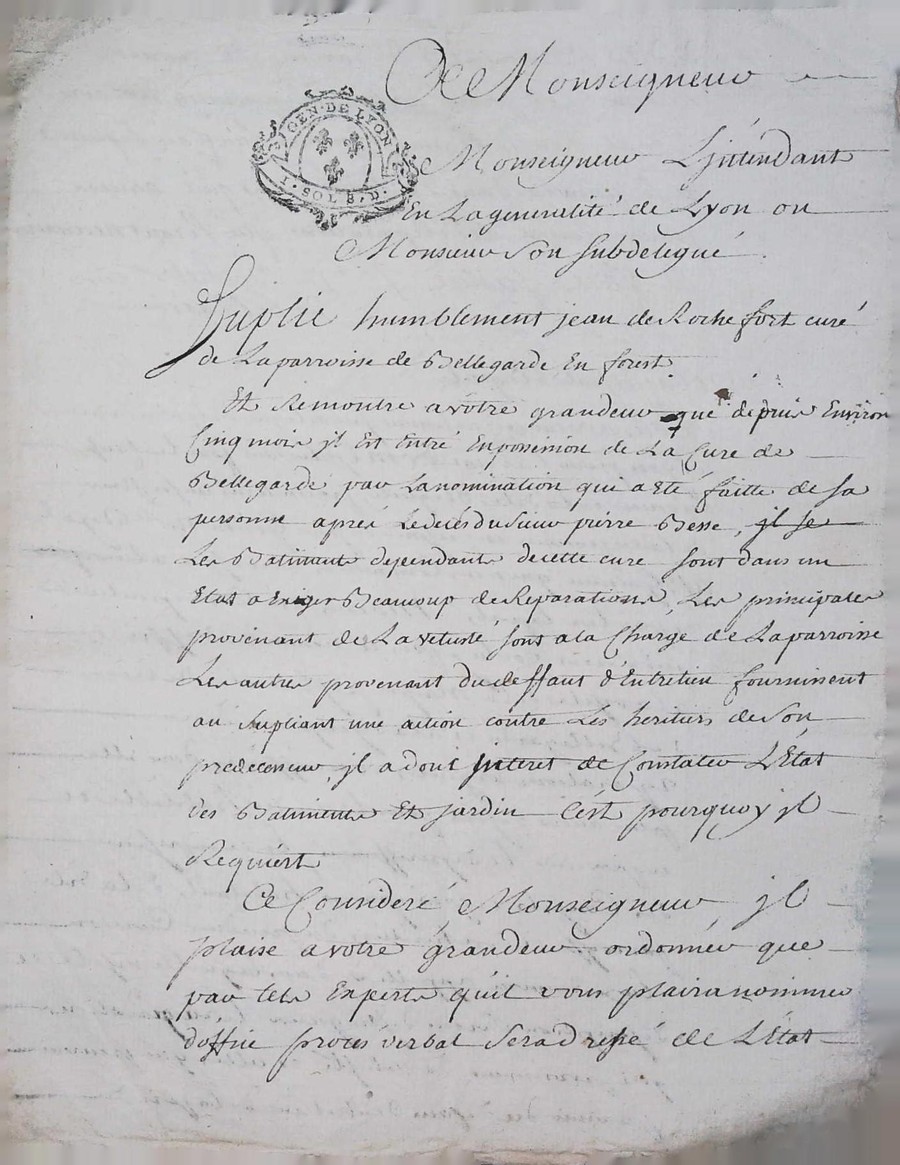 A Monseigneur
GEN·DE LYON
1·SOL 8·D·
Monseigneur L'jntendant
En La generalité de Lyon ou
Monsieur Son Subdelegué
Suplie humblement jean de Rochefort curé
de La parroisse de Bellegarde En forest
Et Remontre a votre grandeur que depuis Environ
Cinq mois jl Est Entré En possession de La Cure de
Bellegarde par La nomination qui a Eté faitte de sa
personne aprés Le decés du Sieur piérre Besse, jl se
Les Batiments dependants de cette cure sont dans un
Etat a Exiger Beaucoup de Reparations, Les principales
provenant de La vetusté sont a la Charge de La parroisse
Les autres provenant du deffaut d'Entretien fournissent
au supliant une action contre Les heritiers de Son
predecesseur, jl a donc jnteret de Constater L'Etat
des Batiments Et jardin C'est pourquoy jl
Requiert
Ce Consideré Monseigneur, jl
plaise a votre grandeur ordonner que
par tels Experts qu'il vous plaira nommer
d'office procés verbal Sera dressé de L'Etat